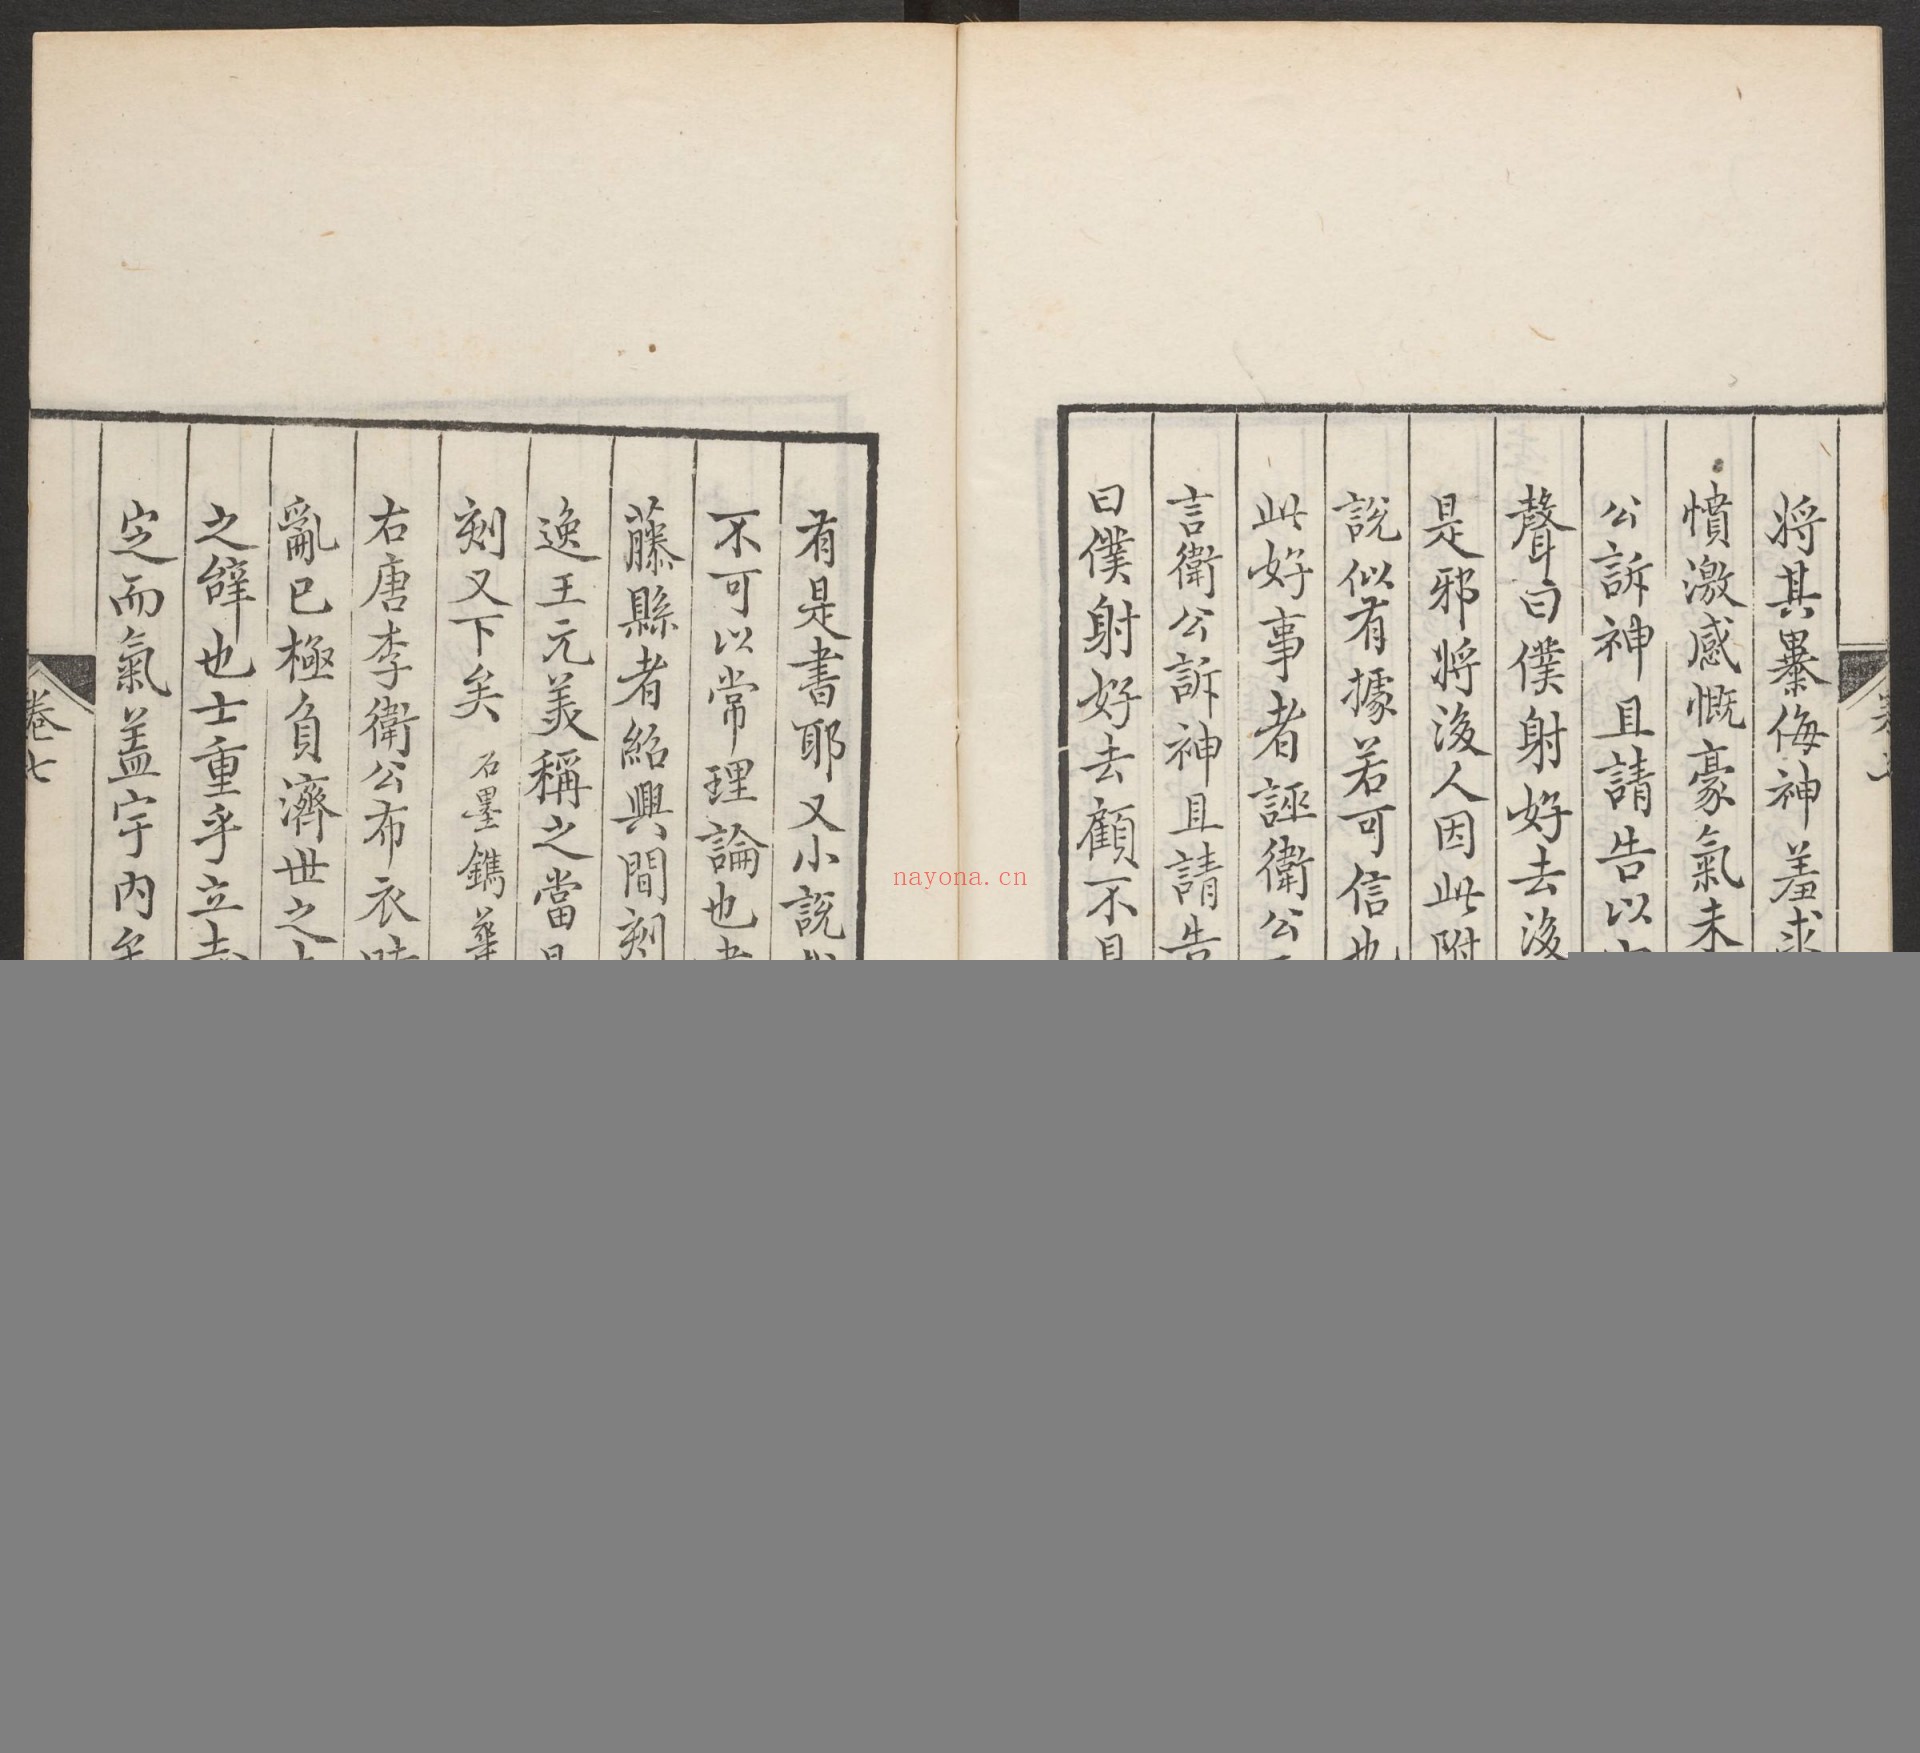 將其暴侮神羞
憤激感慨豪氣未
公訴神且請告以
聲曰僕射好去後
是邪將後人因此附
說似有據若可信也
此好事者誣衛公
言衛公訴神且請告
曰僕射好去顧不
有是書耶又小說
不可以常理論也
藤縣者紹興間刻
逸王元美稱之當
刻又下矣 石墨鐫華
右唐李衛公布衣時
亂已極負濟世之
之辭也士重乎立志
定而氣蓋宇內矣
卷七
nayona.cn